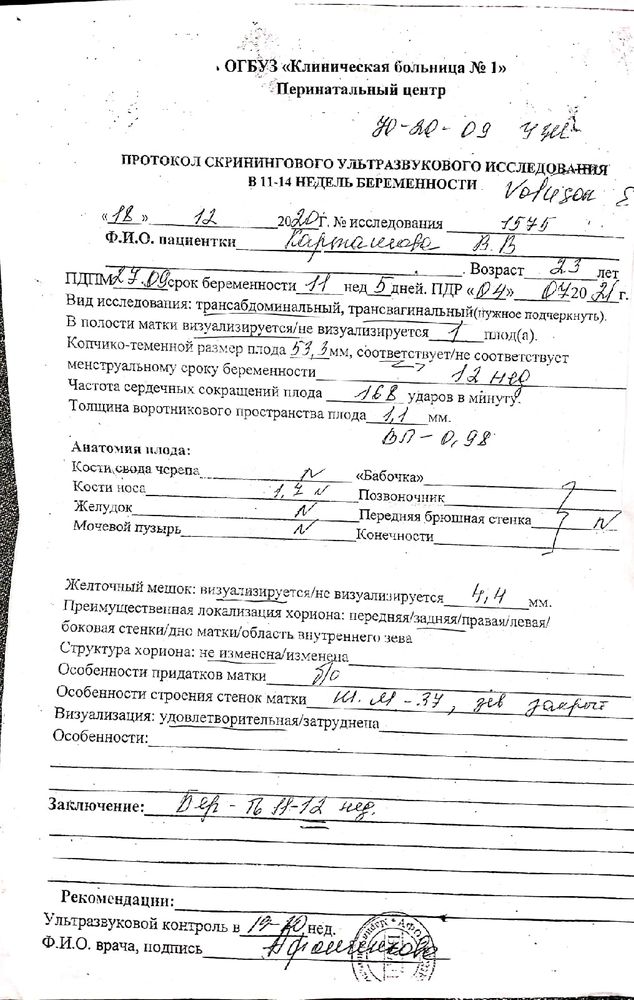 ОГБУЗ «Клиническая больница № 1»
Перинатальный центр
70-20-09
ПРОТОКОЛ СКРИНИНГОВОГО УЛЬТРАЗВУКОВОГО ИССЛЕДОВАНИЯ
В 11-14 НЕДЕЛЬ БЕРЕМЕННОСТИ Voluson E
«18» 12 2020г. № исследования 1575
Ф.И.О. пациентки В.В
Возраст 23 лет
ПДПМ 27.09 срок беременности 11 нед 5 дней. ПДР «04» 07 20 21 г.
Вид исследования: трансабдоминальный, трансвагинальный(нужное подчеркнуть).
В полости матки визуализируется/не визуализируется 1 плод(а).
Копчико-теменной размер плода 53,3 мм, соответствует/не соответствует
менструальному сроку беременности 12 нед
Частота сердечных сокращений плода 168 ударов в минуту.
Толщина воротникового пространства плода 1,1 мм.
ВП - 0,98
Анатомия плода:
Кости свода черепа N «Бабочка»
Кости носа 1,7 N Позвоночник
Желудок N Передняя брюшная стенка N
Мочевой пузырь N Конечности
Желточный мешок: визуализируется/не визуализируется 4,4 мм.
Преимущественная локализация хориона: передняя/задняя/правая/левая/
боковая стенки/дно матки/область внутреннего зева
Структура хориона: не изменена/изменена
Особенности придатков матки б/о
Особенности строения стенок матки ш.м - 37, зев закрыт
Визуализация: удовлетворительная/затруднена
Особенности:
Заключение: Бер - ть 11-12 нед.
Рекомендации:
Ультразвуковой контроль в 19-20 нед.
Ф.И.О. врача, подпись